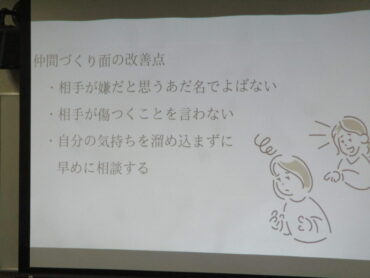 仲間づくり面の改善点
・相手が嫌だと思うあだ名でよばない
・相手が傷つくことを言わない
・自分の気持ちを溜め込まずに
早めに相談する